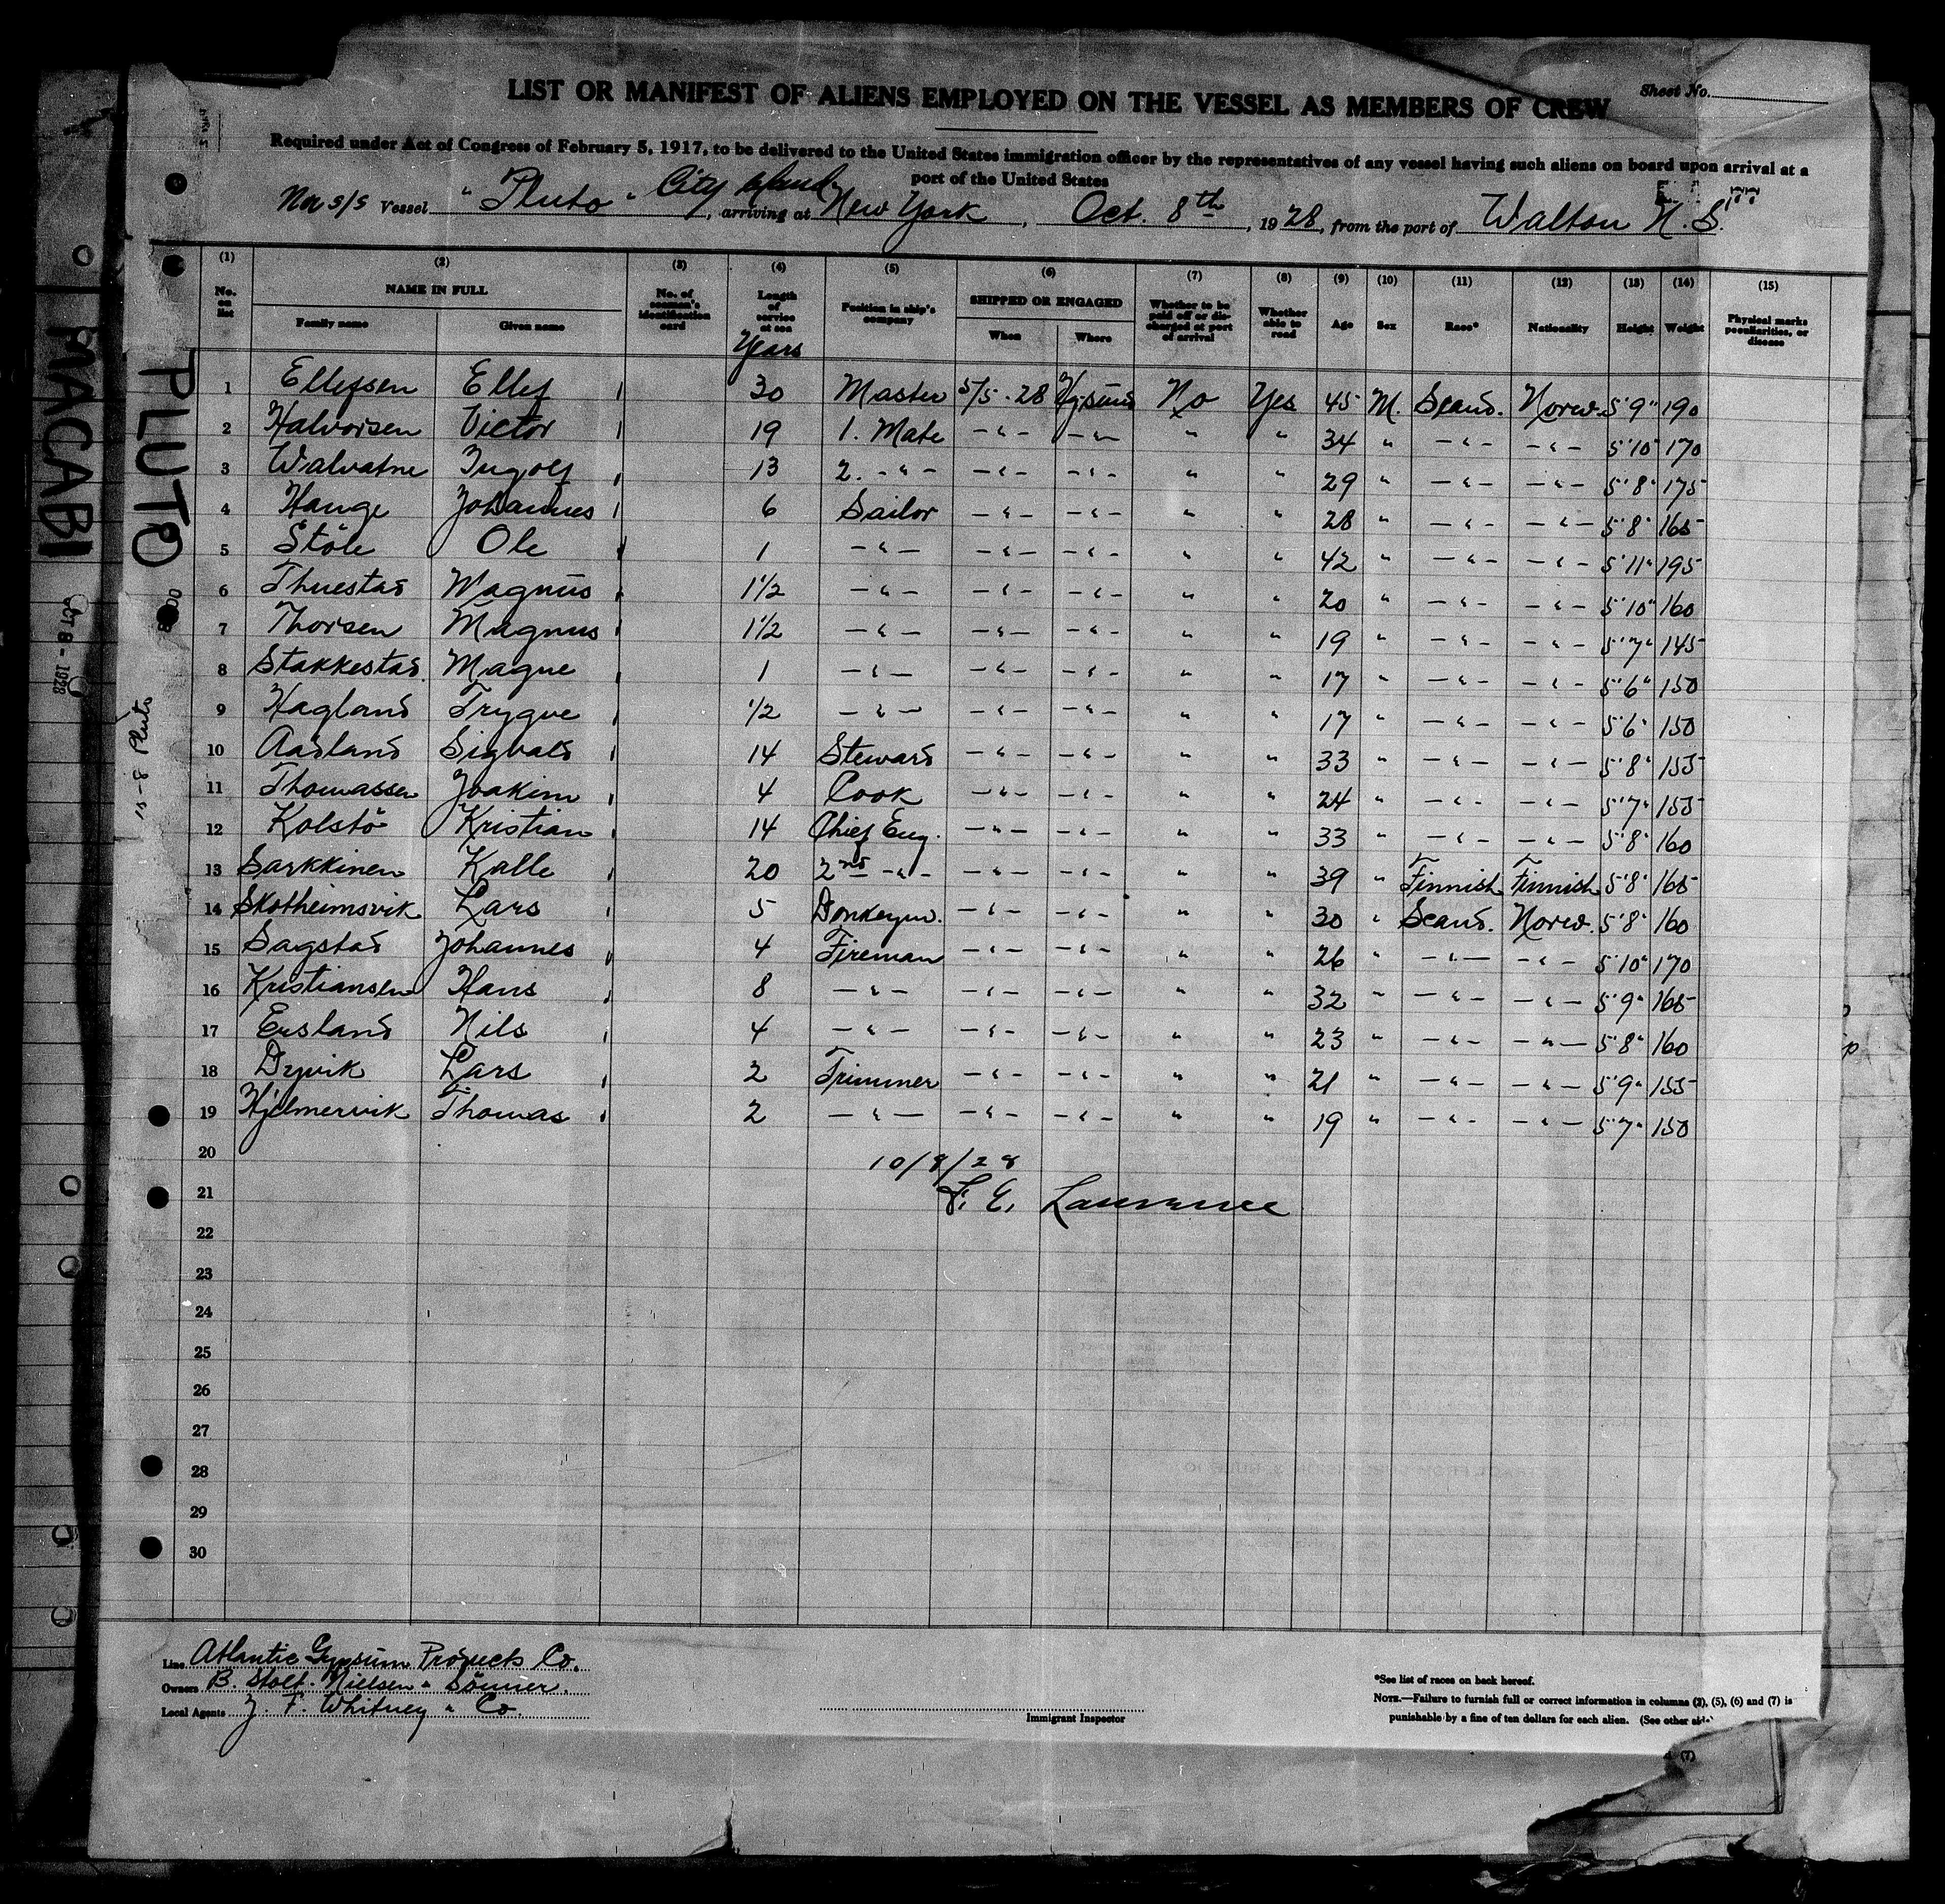 Sheet No.
LIST OR MANIFEST OF ALIENS EMPLOYED ON THE VESSEL AS MEMBERS OF CREW
Required under Act of Congress of February 5, 1917, to be delivered to the United States immigration officer by the representatives of any vessel having such aliens on board upon arrival at a
port of the United States
Nor s/s Vessel "Pluto" City Island, arriving at New York, Oct. 8th, 1928, from the port of Walton N.S.
(1) (2) (3) (4) (5) (6) (7) (8) (9) (10) (11) (12) (13) (14) (15)
No. on list NAME IN FULL No. of seamen's identification card Length of service at sea Position in ship's company SHIPPED OR ENGAGED Whether to be paid off or discharged at port of arrival Whether able to read Age Sex Race* Nationality Height Weight Physical marks peculiarities, or disease
Family name Given name Years When Where
1 Ellefsen Ellef 30 Master 5/5-28 No Yes 45 M. Scand. Norw. 5'9" 190
2 Halvorsen Victor 19 1. Mate -"- -"- " " 34 " -"- -"- 5'10" 170
3 Walvatne Ingolf 13 2. -"- -"- -"- " " 29 " -"- -"- 5'8" 175
4 Hauge Johannes 6 Sailor -"- -"- " " 28 " -"- -"- 5'8" 165
5 Støle Ole 1 -"- -"- -"- " " 42 " -"- -"- 5'11" 195
6 Thuestad Magnus 1 1/2 -"- -"- -"- " " 20 " -"- -"- 5'10" 160
7 Thorsen Magnus 1 1/2 -"- -"- -"- " " 19 " -"- -"- 5'7" 145
8 Stakkestad Magne 1 -"- -"- -"- " " 17 " -"- -"- 5'6" 150
9 Hagland Trygve 1/2 -"- -"- -"- " " 17 " -"- -"- 5'6" 150
10 Aadland Sigvald 14 Steward -"- -"- " " 33 " -"- -"- 5'8" 155
11 Thomassen Joakim 4 Cook -"- -"- " " 24 " -"- -"- 5'7" 155
12 Kolstö Kristian 14 Chief Eng. -"- -"- " " 33 " -"- -"- 5'8" 160
13 Sarkkinen Kalle 20 2nd -"- -"- -"- " " 39 " Finnish Finnish 5'8" 165
14 Skotheimsvik Lars 5 Donkeym. -"- -"- " " 30 " Scand. Norw. 5'8" 160
15 Sagstad Johannes 4 Fireman -"- -"- " " 26 " -"- -"- 5'10" 170
16 Kristiansen Hans 8 -"- -"- -"- " " 32 " -"- -"- 5'9" 165
17 Ersland Nils 4 -"- -"- -"- " " 23 " -"- -"- 5'8" 160
18 Dyvik Lars 2 Trimmer -"- -"- " " 21 " -"- -"- 5'9" 155
19 Hjelmervik Thomas 2 -"- -"- -"- " " 19 " -"- -"- 5'7" 150
20 10/8/28
21 F. E. Lawrence
22
23
24
25
26
27
28
29
30
Line Atlantic Gypsum Products Co.
Owners B. Stolt-Nielsen & Sönner.
Local Agents J. F. Whitney & Co.
Immigrant Inspector
*See list of races on back hereof.
NOTE.—Failure to furnish full or correct information in columns (2), (5), (6) and (7) is
punishable by a fine of ten dollars for each alien. (See other side
(7)
PLUTO
MACABI
OCT 8 - 1928
Pluto